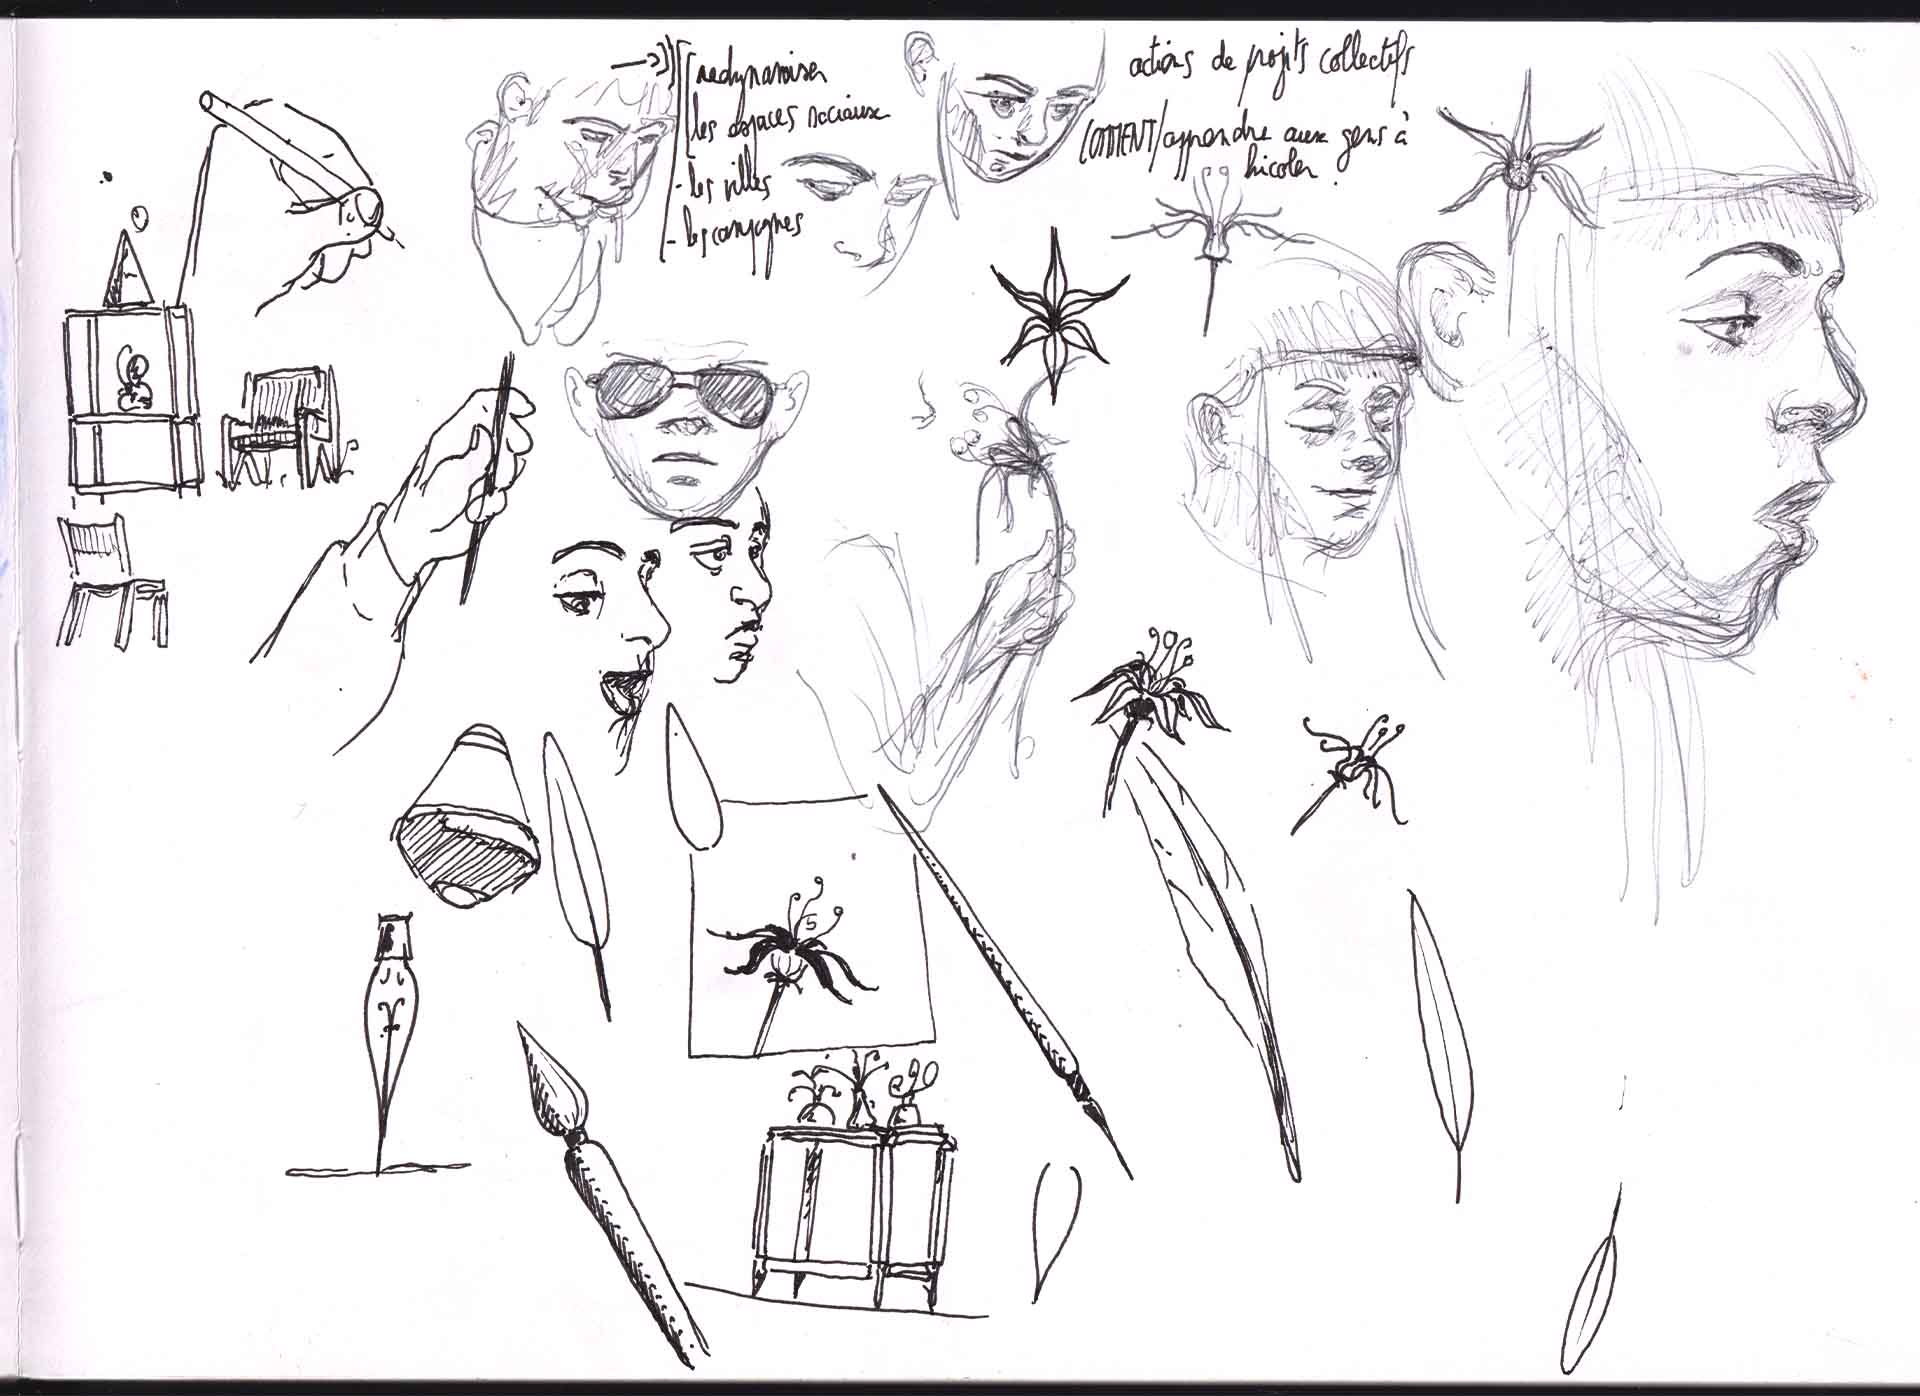 redynamiser
les espaces sociaux
- les villes
- les campagnes
actions de projets collectifs
COMMENT/apprendre aux gens à
bricoler.
5